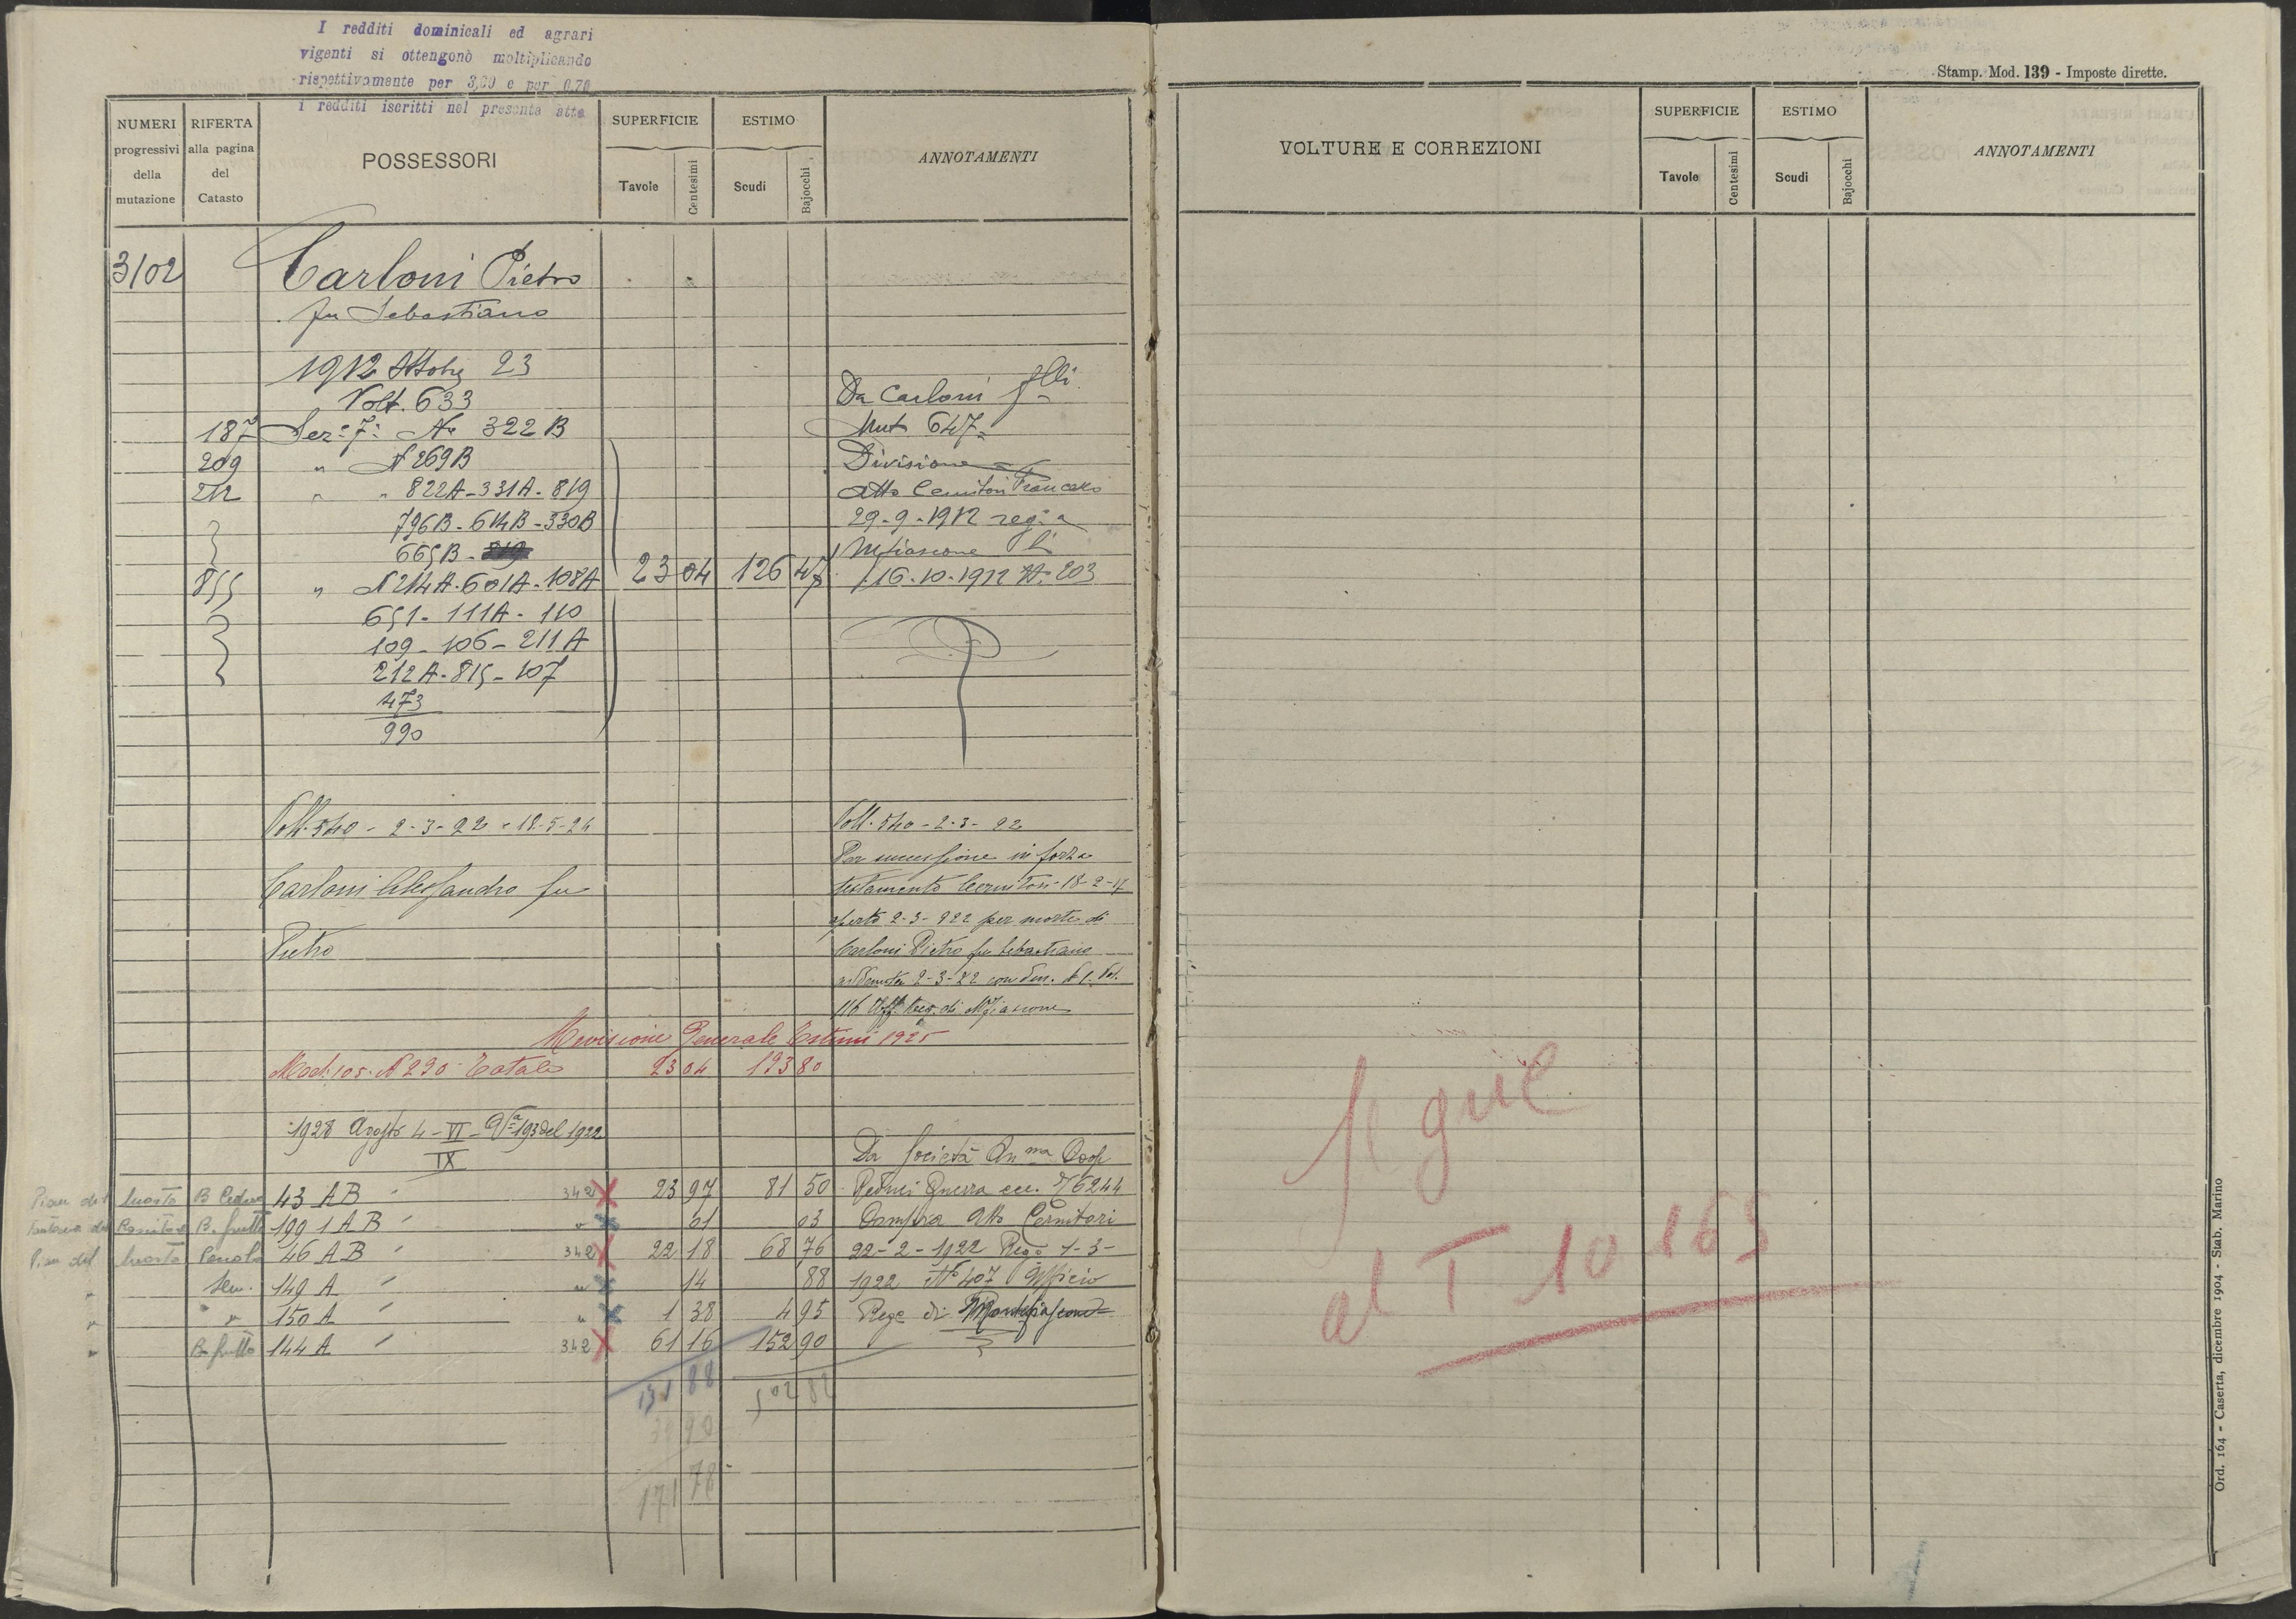 I redditi dominicali ed agrari
vigenti si ottengonò moltiplicando
rispettivamente per 3,60 e per 0,70
i redditi iscritti nel presente atto
Stamp. Mod. 139 - Imposte dirette.
NUMERI progressivi della mutazione
RIFERTA alla pagina del Catasto
POSSESSORI
SUPERFICIE
Tavole Centesimi
ESTIMO
Scudi Bajocchi
ANNOTAMENTI
VOLTURE E CORREZIONI
SUPERFICIE
Tavole Centesimi
ESTIMO
Scudi Bajocchi
ANNOTAMENTI
3102 Carloni Pietro
fu Sebastiano
1912 Ottobre 23
Volt. 633 Da Carloni flli
187 Sez. 7ª Nr 322 B Mut 647
209 " N 269 B Divisione
212 " " 822A - 331A - 819 atto Cernitori Francesco
796B - 614B - 330B 29-9-1912 reg. a
665B - Mfiascone li
855 " N 214A - 601A - 108A 23 04 126 47 16-10-1912 N. 203
651 - 111A - 110
109 - 106 - 211A
212A - 815 - 107
473
990
Volt. 540 - 2-3-22 - 12-5-24 Volt. 540 - 2-3-22
Per successione in forza
Carloni Alessandro fu testamento Cernitori 18-2-17
aperto 2-3-922 per morte di
Pietro Carloni Pietro fu Sebastiano
2-3-22 con den. Vol.
116 Uff. Reg. di Mfiascone
Revisione Generale Estimi 1925
Mod. 105. N 290 Totale 23 04 193 80
1928 Agosto 4 - VI - Vª 193 del 1922
IX
Da Società Anma Coop
Pian del B Ceduo 43 AB 342 23 97 81 50 Reduci Guerra ecc. 6244
B. frutto 199 1 AB " 01 03 Compra Atto Cernitori
Pian del 46 AB 342 22 18 68 76 22-2-1922 Rego 1-3-
" Sem. 149 A " 14 88 1922 No 407 Ufficio
" " 150 A " 1 38 4 95 Rege di Montefiascone
" B. frutto 144 A 342 61 16 152 90
131 88 502 82
39 90
171 78
Segue
al T 10 165
Ord. 164 - Caserta, dicembre 1904 - Stab. Marino